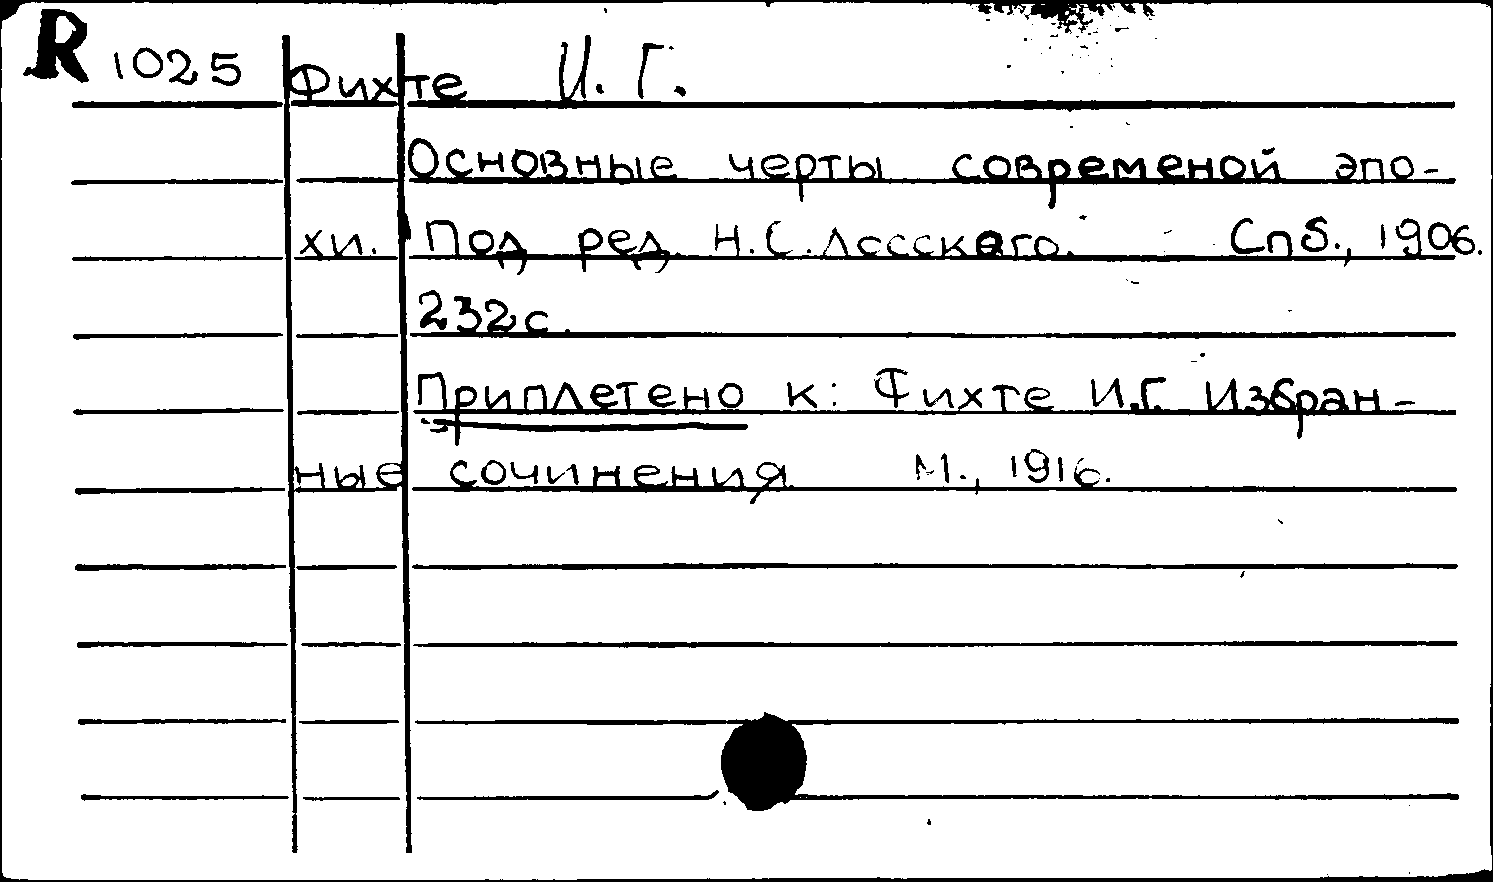 R 1025 Фихте И. Г.
Основные черты современой эпо-
хи. Под ред. Н.С.Лосского. Спб., 1906.
232с.
Приплетено к: Фихте И.Г. Избран-
ные сочинения. М., 1916.